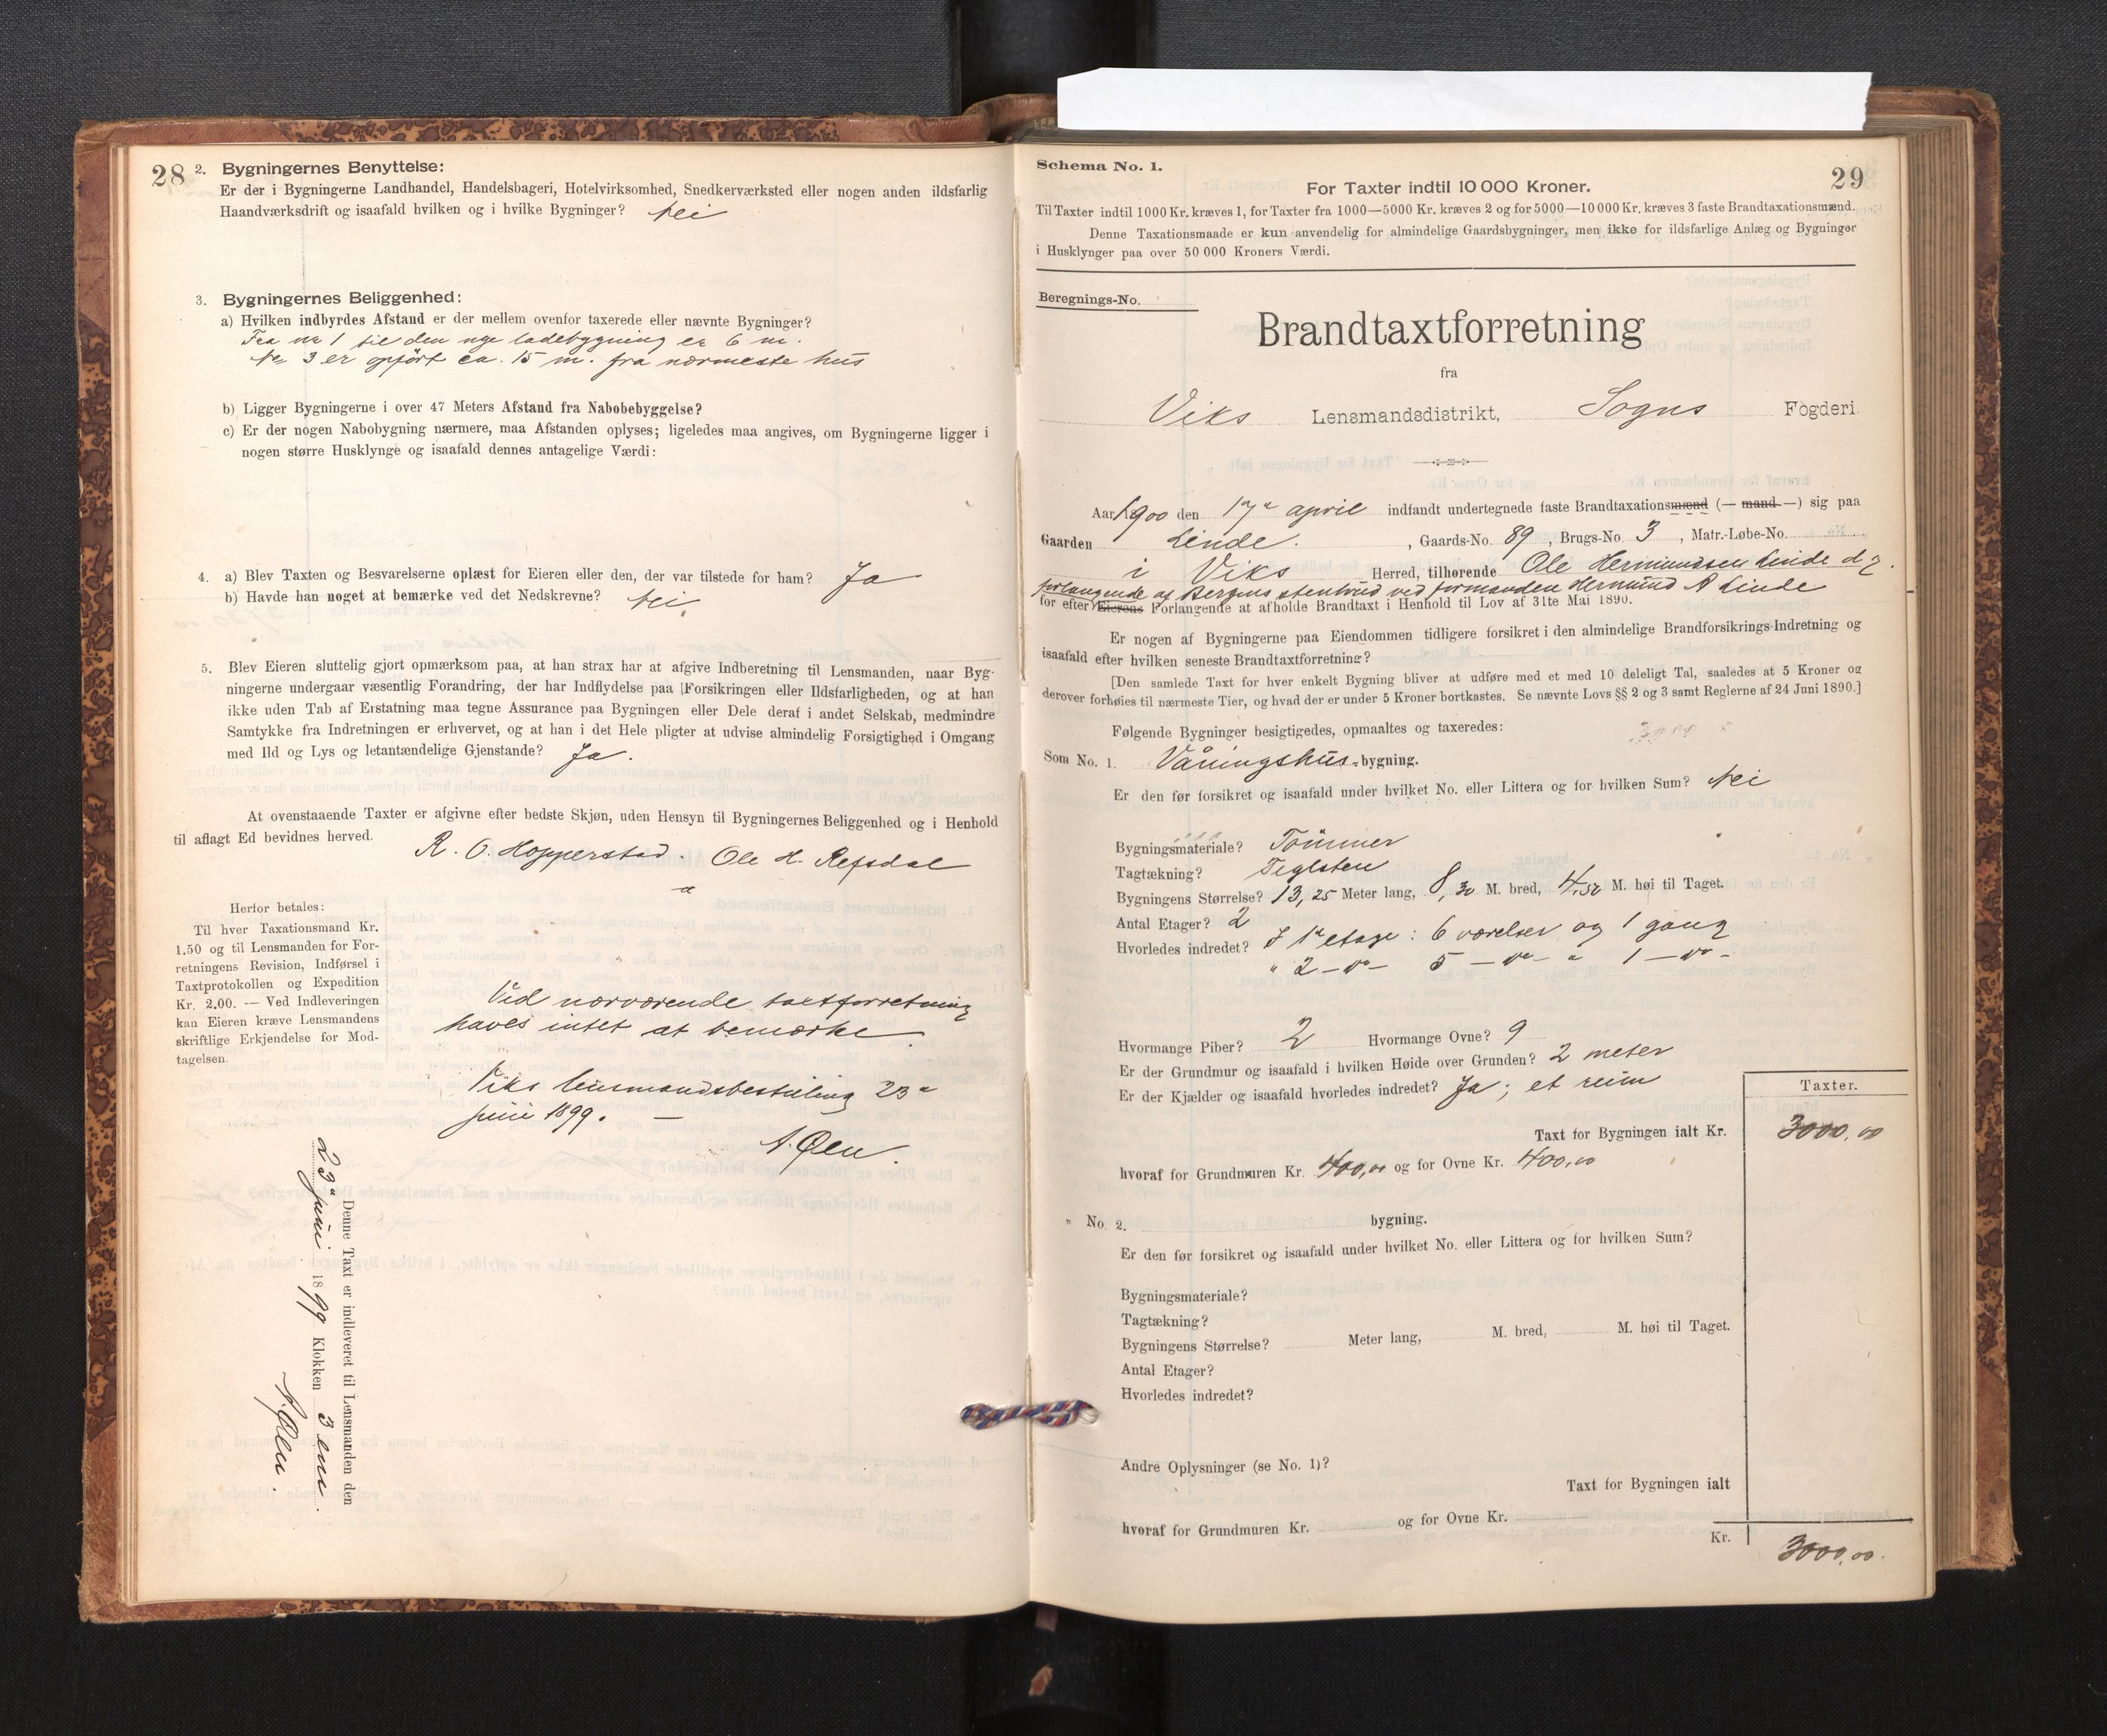 28
2. Bygningernes Benyttelse:
Er der i Bygningerne Landhandel, Handelsbageri, Hotelvirksomhed, Snedkerværksted eller nogen anden ildsfarlig
Haandværksdrift og isaafald hvilken og i hvilke Bygninger? Nei
3. Bygningernes Beliggenhed:
a) Hvilken indbyrdes Afstand er der mellem ovenfor taxerede eller nævnte Bygninger?
Fra nr 1 til den nye ladebygning er 6 m.
Nr 3 er opført ca. 15 m. fra nærmeste hus
b) Ligger Bygningerne i over 47 Meters Afstand fra Nabobebyggelse?
c) Er der nogen Nabobygning nærmere, maa Afstanden oplyses; ligeledes maa angives, om Bygningerne ligger i
nogen større Husklynge og isaafald dennes antagelige Værdi:
4. a) Blev Taxten og Besvarelserne oplæst for Eieren eller den, der var tilstede for ham? Ja
b) Havde han noget at bemærke ved det Nedskrevne? Nei
5. Blev Eieren sluttelig gjort opmærksom paa, at han strax har at afgive Indberetning til Lensmanden, naar Byg-
ningerne undergaar væsentlig Forandring, der har Indflydelse paa Forsikringen eller Ildsfarligheden, og at han
ikke uden Tab af Erstatning maa tegne Assurance paa Bygningen eller Dele deraf i andet Selskab, medmindre
Samtykke fra Indretningen er erhvervet, og at han i det Hele pligter at udvise almindelig Forsigtighed i Omgang
med Ild og Lys og letantændelige Gjenstande? Ja.
At ovenstaaende Taxter er afgivne efter bedste Skjøn, uden Hensyn til Bygningernes Beliggenhed og i Henhold
til aflagt Ed bevidnes herved.
R. O. Hopperstad. Ole H. Refsdal
Herfor betales:
Til hver Taxationsmand Kr.
1.50 og til Lensmanden for For-
retningens Revision, Indførsel i
Taxtprotokollen og Expedition
Kr. 2.00. — Ved Indleveringen
kan Eieren kræve Lensmandens
skriftlige Erkjendelse for Mod-
tagelsen.
Ved nærværende taxtforretning
haves intet at bemærke.
Viks lensmandsbestilling 23de
juni 1899. —
A. Øen.
Denne Taxt er indleveret til Lensmanden den
23de juni 1899 Klokken 3 em.
A. Øen.
Schema No. 1.
29
For Taxter indtil 10 000 Kroner.
Til Taxter indtil 1000 Kr. kræves 1, for Taxter fra 1000—5000 Kr. kræves 2 og for 5000—10 000 Kr. kræves 3 faste Brandtaxationsmænd.
Denne Taxationsmaade er kun anvendelig for almindelige Gaardsbygninger, men ikke for ildsfarlige Anlæg og Bygninger
i Husklynger paa over 50 000 Kroners Værdi.
Beregnings-No.
Brandtaxtforretning
fra
Viks Lensmandsdistrikt, Sogns Fogderi
Aar 1900 den 17de april indfandt undertegnede faste Brandtaxationsmænd (— mand —) sig paa
Gaarden Linde. , Gaards-No. 89, Brugs-No. 3, Matr.-Løbe-No.
i Viks Herred, tilhørende Ole Hermundsen Linde
forlangende af Bergens ved formanden Hermund A Linde
for efter Eierens Forlangende at afholde Brandtaxt i Henhold til Lov af 31te Mai 1890.
Er nogen af Bygningerne paa Eiendommen tidligere forsikret i den almindelige Brandforsikrings-Indretning og
isaafald efter hvilken seneste Brandtaxtforretning?
[Den samlede Taxt for hver enkelt Bygning bliver at udføre med et med 10 deleligt Tal, saaledes at 5 Kroner og
derover forhøies til nærmeste Tier, og hvad der er under 5 Kroner bortkastes. Se nævnte Lovs §§ 2 og 3 samt Reglerne af 24 Juni 1890.]
Følgende Bygninger besigtigedes, opmaaltes og taxeredes:
Som No. 1. Våningshus-bygning.
Er den før forsikret og isaafald under hvilket No. eller Littera og for hvilken Sum? Nei
Bygningsmateriale? Tømmer
Tagtækning? Teglsten
Bygningens Størrelse? 13,25 Meter lang, 8,30 M. bred, 4,50 M. høi til Taget.
Antal Etager? 2
Hvorledes indredet? I 1ste etage: 6 værelser og 1 gang
" 2 - do - 5 - do - " 1 - do -
Hvormange Piber? 2 Hvormange Ovne? 9
Er der Grundmur og isaafald i hvilken Høide over Grunden? 2 meter
Er der Kjælder og isaafald hvorledes indredet? Ja; et rum
Taxter.
Taxt for Bygningen ialt Kr. 3000,00
hvoraf for Grundmuren Kr. 400,00 og for Ovne Kr. 400,00
" No. 2. bygning.
Er den før forsikret og isaafald under hvilket No. eller Littera og for hvilken Sum?
Bygningsmateriale?
Tagtækning?
Bygningens Størrelse? Meter lang, M. bred, M. høi til Taget.
Antal Etager?
Hvorledes indredet?
Andre Oplysninger (se No. 1)?
Taxt for Bygningen ialt
hvoraf for Grundmuren Kr. og for Ovne Kr.
Kr. 3000,00.